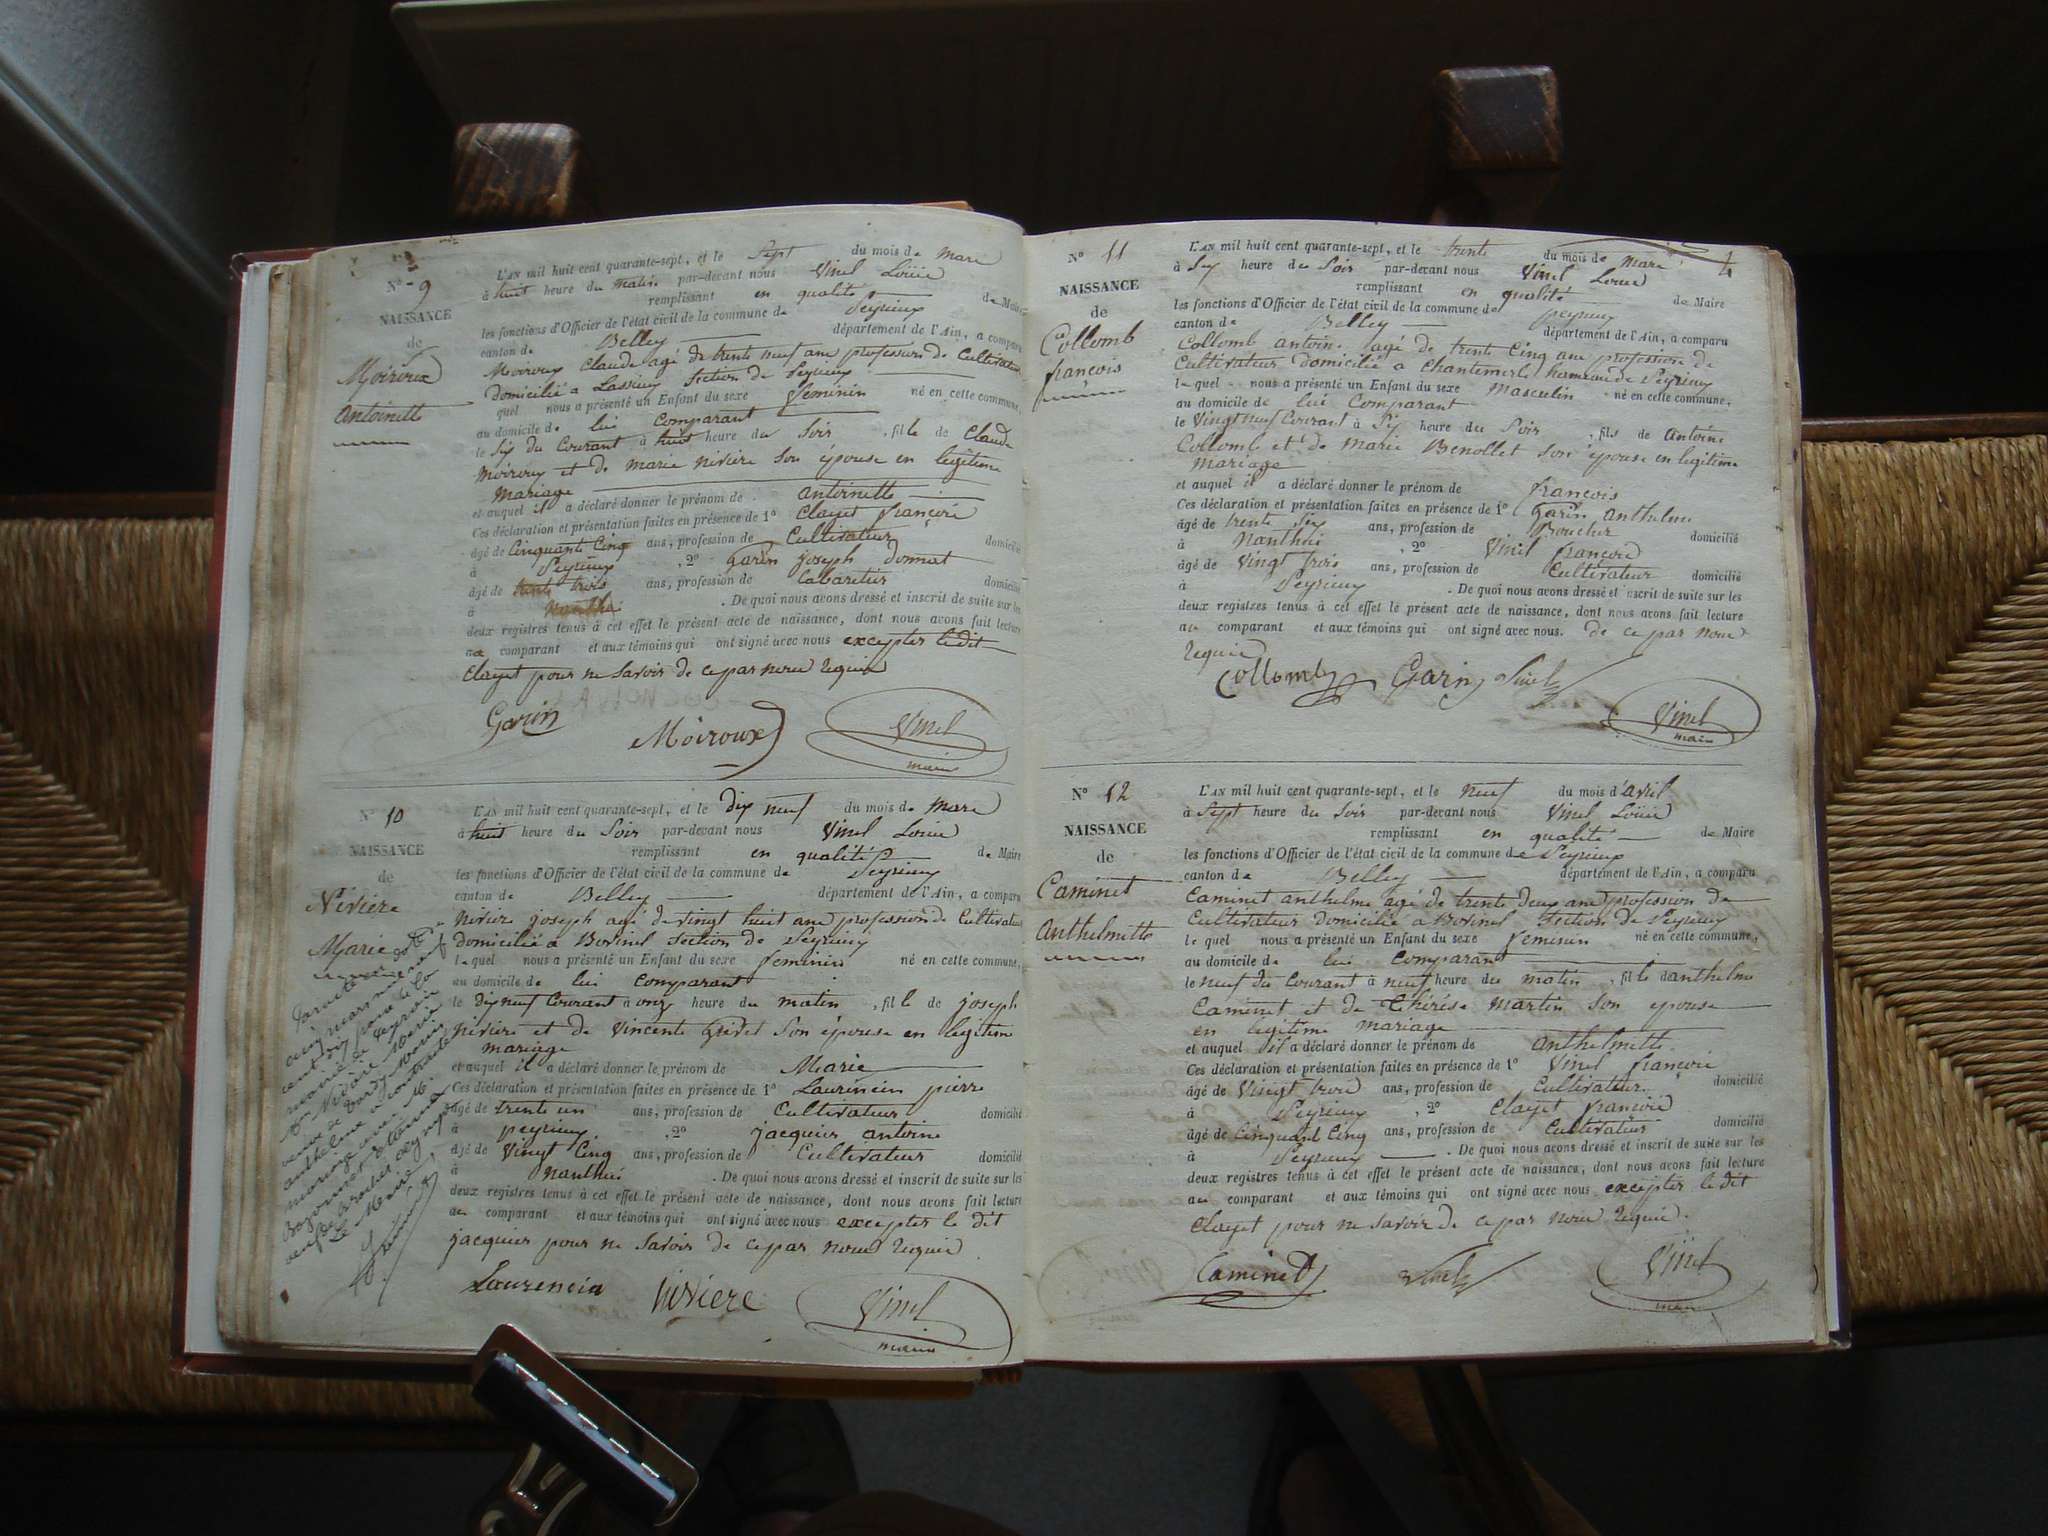 N° 9
NAISSANCE
de
Moiroux
Antoinette
L'AN mil huit cent quarante-sept, et le sept du mois de mars
à huit heure du matin par-devant nous Vinel Louis
remplissant en qualité de Maire
les fonctions d'Officier de l'état civil de la commune de Peyrieux
canton de Belley département de l'Ain, a comparu
Moiroux Claude agé de trente neuf ans profession de Cultivateur
domicilié a Lassieux Section de Peyrieux
quel nous a présenté un Enfant du sexe feminin né en cette commune,
au domicile de lui Comparant
le six du Courant à huit heure du Soir , fille de Claude
Moiroux et de marie niviere Son epouse en legitime
mariage
et auquel il a déclaré donner le prénom de antoinette
Ces déclaration et présentation faites en présence de 1° Clayet françois
âgé de Cinquante Cinq ans, profession de Cultivateur domicilié
à Peyrieux , 2° Garin joseph donnat
âgé de trente trois ans, profession de Cabaretier domicilié
à Nanthui . De quoi nous avons dressé et inscrit de suite sur les
deux registres tenus à cet effet le présent acte de naissance, dont nous avons fait lecture
au comparant et aux témoins qui ont signé avec nous excepter ledit
Clayet pour ne Savoir de ce par nous requis
Garin Moiroux Vinel
maire
N° 10
NAISSANCE
de
Nivière
Marie
L'AN mil huit cent quarante-sept, et le dix neuf du mois de mars
à huit heure du Soir par-devant nous Vinel Louis
remplissant en qualité de Maire
les fonctions d'Officier de l'état civil de la commune de Peyrieux
canton de Belley département de l'Ain, a comparu
Nivière joseph agé de vingt huit ans profession de Cultivateur
domicilié a Bovinel Section de Peyrieux
le quel nous a présenté un Enfant du sexe feminin né en cette commune,
au domicile de lui comparant
le dix neuf Courant à onze heure du matin , fille de joseph
nivière et de Vincente Son épouse en legitime
mariage
et auquel il a déclaré donner le prénom de Marie
Ces déclaration et présentation faites en présence de 1° Laurencin pierre
âgé de trente un ans, profession de Cultivateur domicilié
à peyrieux , 2° jacquier antoine
âgé de Vingt Cinq ans, profession de Cultivateur domicilié
à Nanthui . De quoi nous avons dressé et inscrit de suite sur les
deux registres tenus à cet effet le présent acte de naissance, dont nous avons fait lecture
au comparant et aux témoins qui ont signé avec nous excepter le dit
jacquier pour ne Savoir de ce par nous requis
Laurencin Nivière Vinel
maire
Le Maire
N° 11
NAISSANCE
de
Collomb
françois
L'AN mil huit cent quarante-sept, et le trente du mois de mars
à Six heure du Soir par-devant nous Vinel Louis
remplissant en qualité de Maire
les fonctions d'Officier de l'état civil de la commune de peyrieux
canton de Belley département de l'Ain, a comparu
Collomb antoine agé de trente Cinq ans profession de
Cultivateur domicilié a Chantemerle hameau de Peyrieux
le quel nous a présenté un Enfant du sexe masculin né en cette commune,
au domicile de lui Comparant
le Vingt neuf Courant à Six heure du Soir , fils de antoine
Collomb et de Marie Benollet Son épouse en legitime
mariage
et auquel il a déclaré donner le prénom de françois
Ces déclaration et présentation faites en présence de 1° Garin anthelme
âgé de trente Six ans, profession de Boucher domicilié
à Nanthui , 2° Vinel françois
âgé de Vingt trois ans, profession de Cultivateur domicilié
à Peyrieux . De quoi nous avons dressé et inscrit de suite sur les
deux registres tenus à cet effet le présent acte de naissance, dont nous avons fait lecture
au comparant et aux témoins qui ont signé avec nous. de ce par nous
requis
Collomb Garin Vinel
Vinel
maire
N° 12
NAISSANCE
de
Caminet
Anthelmette
L'AN mil huit cent quarante-sept, et le neuf du mois d'avril
à Sept heure du Soir par-devant nous Vinel Louis
remplissant en qualité de Maire
les fonctions d'Officier de l'état civil de la commune de Peyrieux
canton de Belley département de l'Ain, a comparu
Caminet anthelme agé de trente deux ans profession de
Cultivateur domicilié a Bovinel Section de Peyrieux
le quel nous a présenté un Enfant du sexe feminin né en cette commune,
au domicile de lui Comparant
le neuf du Courant à neuf heure du matin , fille d'anthelme
Caminet et de Thérèse Martin Son epouse
en legitime mariage
et auquel il a déclaré donner le prénom de anthelmette
Ces déclaration et présentation faites en présence de 1° Vinel françois
âgé de Vingt trois ans, profession de Cultivateur domicilié
à Peyrieux , 2° Clayet françois
âgé de Cinquant Cinq ans, profession de Cultivateur domicilié
à Peyrieux . De quoi nous avons dressé et inscrit de suite sur les
deux registres tenus à cet effet le présent acte de naissance, dont nous avons fait lecture
au comparant et aux témoins qui ont signé avec nous excepter le dit
Clayet pour ne Savoir de ce par nous requis.
Caminet Vinel Vinel
maire